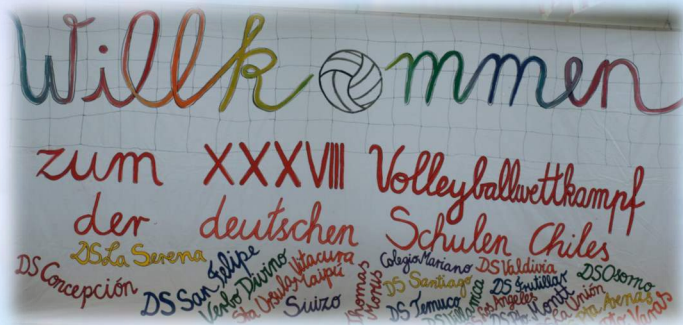 Willkommen
zum XXXVIII Volleyballwettkampf
der deutschen Schulen Chiles
DS La Serena
DS Concepción
DS San Felipe
Verbo Divino
Sta Ursula Vitacura
Sta Ursula Maipú
Suizo
Thomas Morus
Colegio Mariano
DS Santiago
DS Temuco
DS Valdivia
DS Frutillar
Los Angeles
DS Villarrica
La Unión
DS Osorno
Pta Arenas
Pto Varas